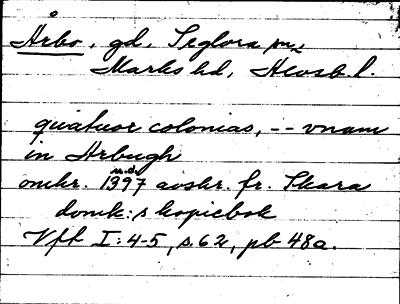 Årbo, gd, Seglora sn,
Marks hd, Älvsb. l.
quatuor colonias, -- vnam
in Arbugh
omkr. 1397 avskr. fr. Skara
domk:s kopiebok
Vft I: 4-5, s. 62, pb 48a.